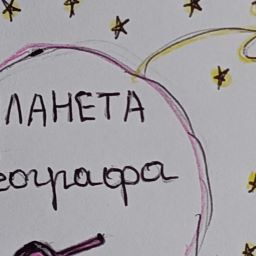 ЛАНЕТА
еографа